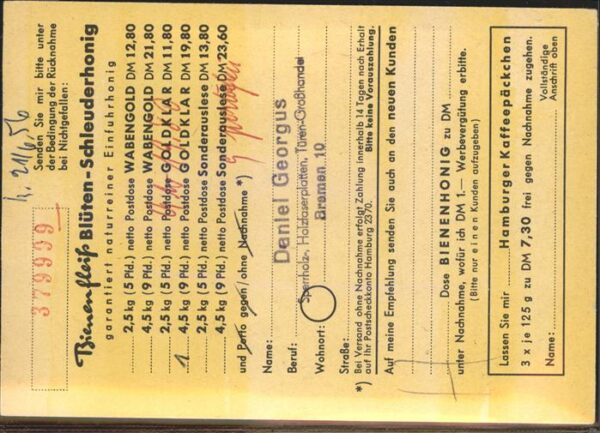 379939
h. 21/6. 56
Senden Sie mir bitte unter
der Bedingung der Rücknahme
bei Nichtgefallen:
Bienenfleiß Blüten-Schleuderhonig
garantiert naturreiner Einfuhrhonig
2,5 kg (5 Pfd.) netto Postdose WABENGOLD DM 12,80
4,5 kg (9 Pfd.) netto Postdose WABENGOLD DM 21,80
2,5 kg (5 Pfd.) netto Postdose GOLDKLAR DM 11,80
1 4,5 kg (9 Pfd.) netto Postdose GOLDKLAR DM 19,80
2,5 kg (5 Pfd.) netto Postdose Sonderauslese DM 13,80
4,5 kg (9 Pfd.) netto Postdose Sonderauslese DM 23,60
und Porto gegen/ohne Nachnahme *)
Name:
Daniel Georgus
Beruf:
Sperrholz-, Holzfaserplatten, Türen-Großhandel
Wohnort:
Bremen 10
Straße:
*) Bei Versand ohne Nachnahme erfolgt Zahlung innerhalb 14 Tagen nach Erhalt
auf Ihr Postscheckkonto Hamburg 2370. Bitte keine Vorauszahlung.
Auf meine Empfehlung senden Sie auch an den neuen Kunden
Dose BIENENHONIG zu DM
unter Nachnahme, wofür ich DM 1.— Werbevergütung erbitte.
(Bitte nur einen Kunden aufgeben)
Lassen Sie mir Hamburger Kaffeepäckchen
3 x je 125 g zu DM 7,30 frei gegen Nachnahme zugehen.
Name:
Vollständige
Anschrift oben